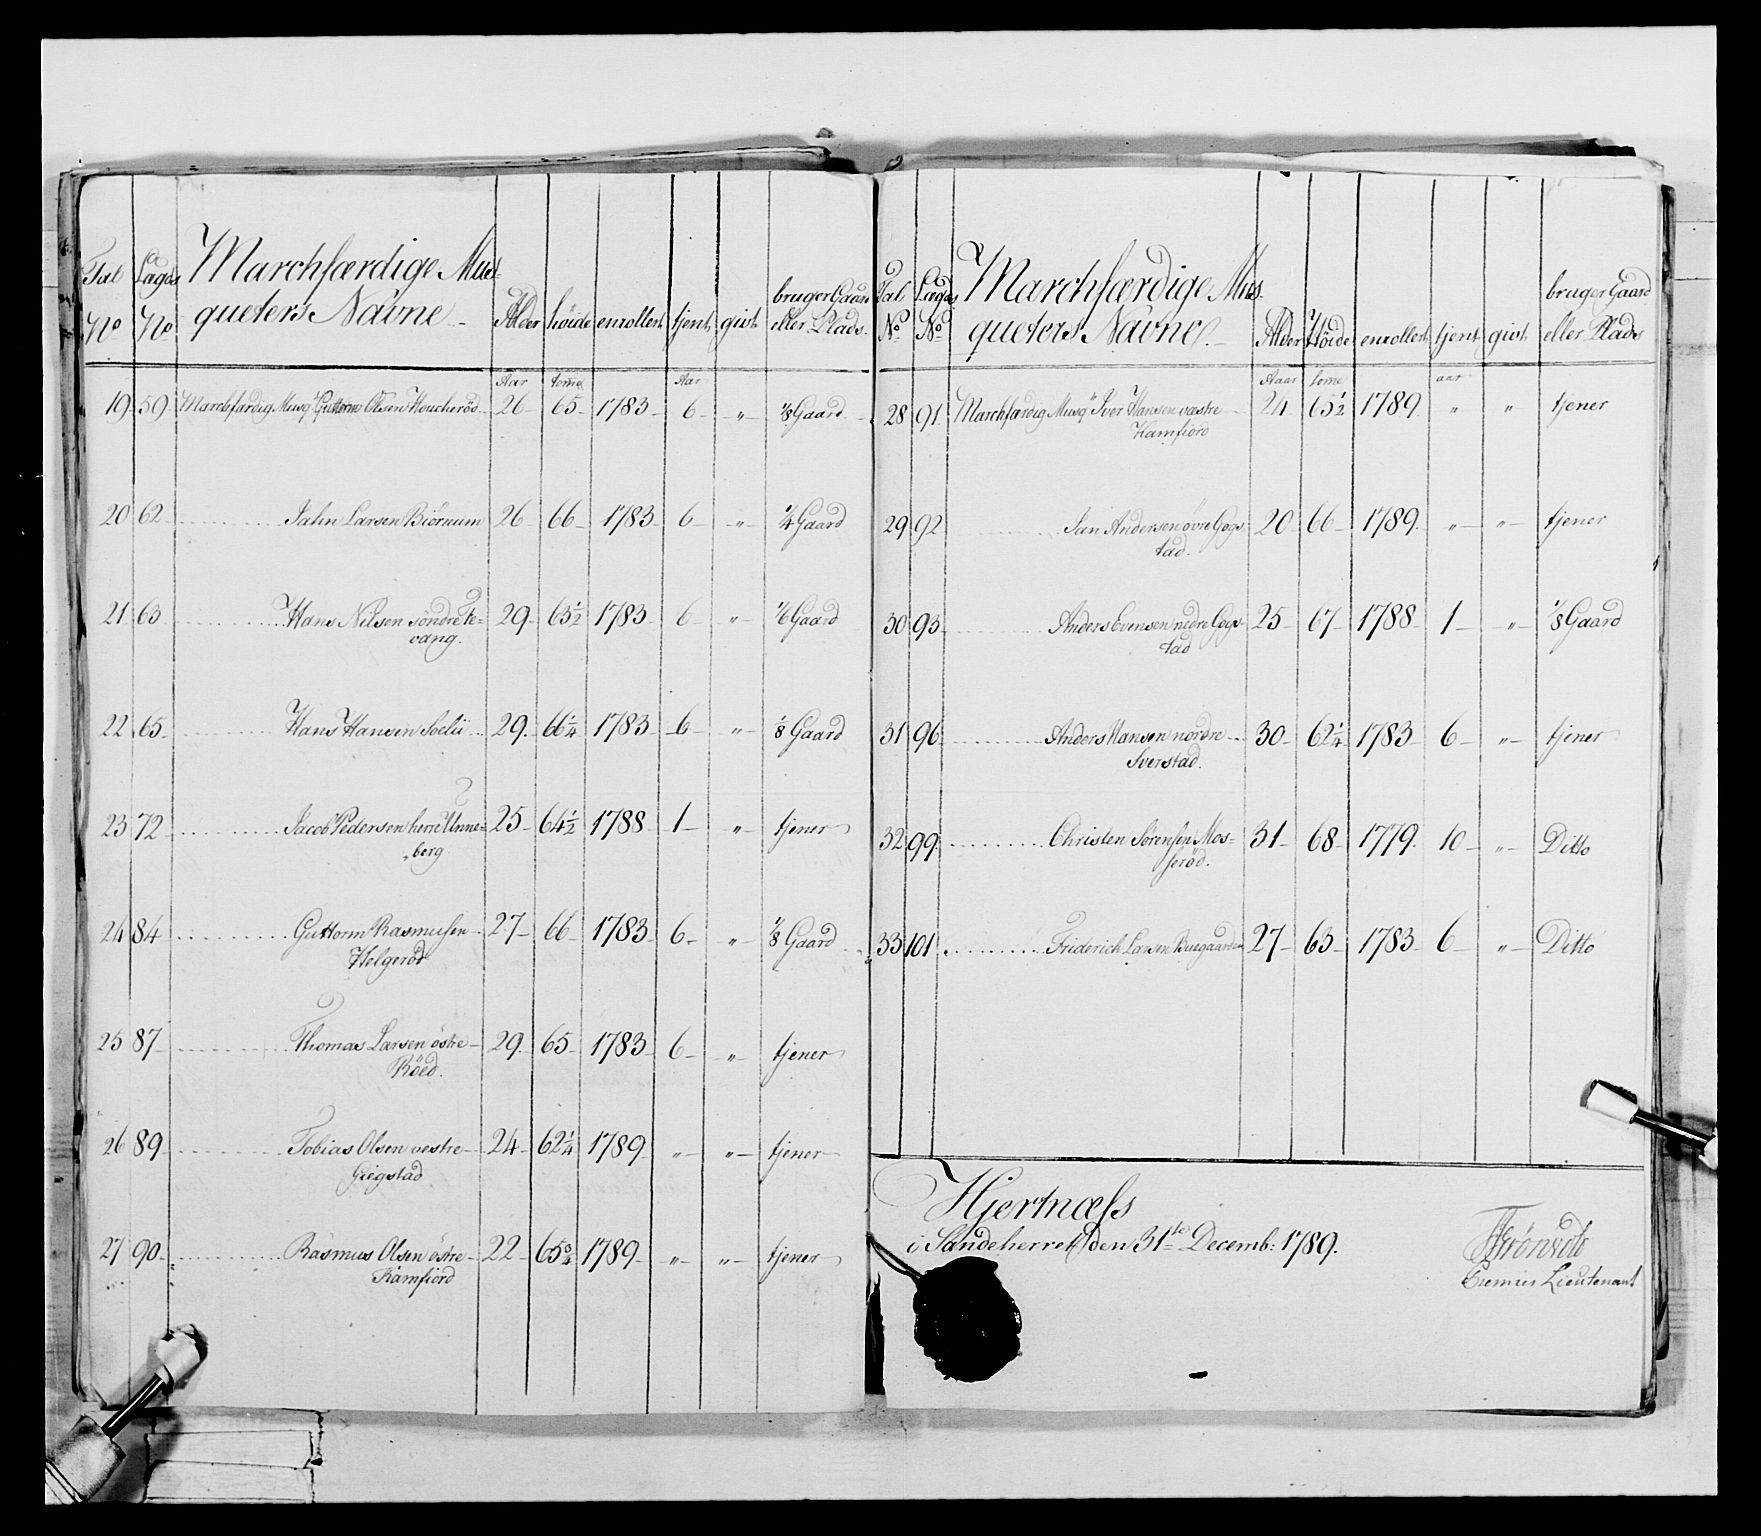 Tal Lægds Marchfærdige Mus-
No No queters Navne Alder höide enrollert tjent givt bruger Gaard
eller Plads
Aar tome Aar
19 59 Marchfærdig Musq: Guttorm Olsen Houcheröd 26 65 1783 6 " 1/8 Gaard
20 62 Jahn Larsen Biörnum 26 66 1783 6 " 1/4 Gaard
21 63 Hans Nilsen söndre Ve- 29 63 1/2 1783 6 " 1/6 Gaard
vang.
22 65 Hans Hansen Soelii 29 66 1/4 1783 6 " 1/8 Gaard
23 72 Jacob Pedersen herre Unne- 25 64 1/2 1788 1 " tjener
berg
24 84 Guttorm Rasmusen 27 66 1783 6 " 1/8 Gaard
Helgeröd
25 87 Thomas Larsen östre 29 65 1783 6 " tjener
Röed.
26 89 Tobias Olsen vestre 24 62 1/4 1789 " " tjener
Giegstad
27 90 Rasmus Olsen östre 22 65 3/4 1789 " " tjener
Kamfiord
Tal Lægds Marchfærdige Mus-
No No queters Navne Alder Höide enrollert tjent givt bruger Gaard
eller Plads
Aaar tome aar
28 91 Marchfærdig Musq" Iver Hansen væstre 24 65 1/2 1789 " " tjener
Kamfiord
29 92 Jan Andersen övre Gogs 20 66 1789 " " tjener
tad.
30 93 Anders Evensen nedre Gogs 25 67 1788 1 " 1/8 Gaard
tad
31 96 Anders Hansen nordre 30 62 1/4 1783 6 " tjener
Sverstad.
32 99 Christen Sörensen Mos- 31 68 1779 10 " Ditto
seröd.
33 101 Friderich Larsen Buegaarden 27 63 1783 6 " Ditto
Hjertnæss
i Sandeherret den 31te Decemb: 1789.
Premier Lieutenant